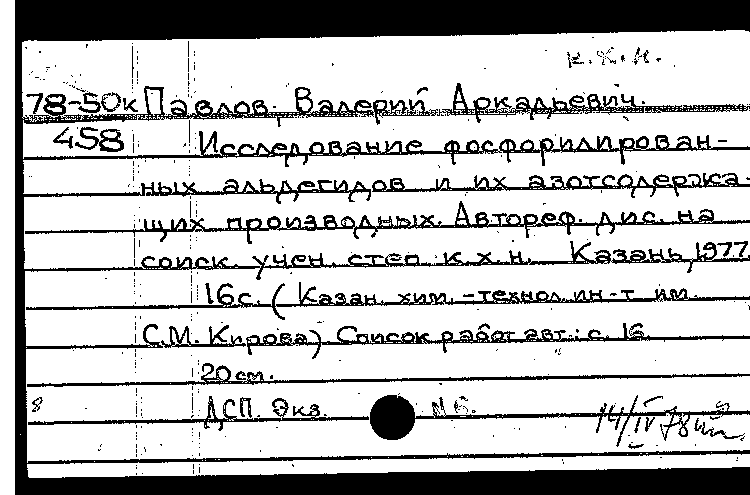 к.х.н.
78-50к Павлов. Валерий Аркадьевич.
458 Исследование фосфорилирован-
ных альдегидов и их азотсодержа-
щих производных. Автореф. дис. на
соиск. учен. степ к.х.н. Казань, 1977.
16с. (Казан. хим.-технол. ин-т им.
С.М. Кирова). Список работ авт.: с. 16
20 см.
8 ДСП. Экз. №6.
14/IV 78